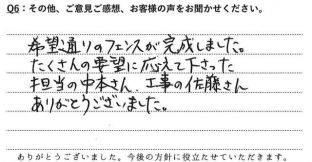 Q6：その他、ご意見ご感想、お客様の声をお聞かせください。
希望通りのフェンスが完成しました。
たくさんの要望に応えて下さった
担当の中本さん、工事の佐藤さん
ありがとうございました。
ありがとうございました。今後の方針に役立たせていただきます。